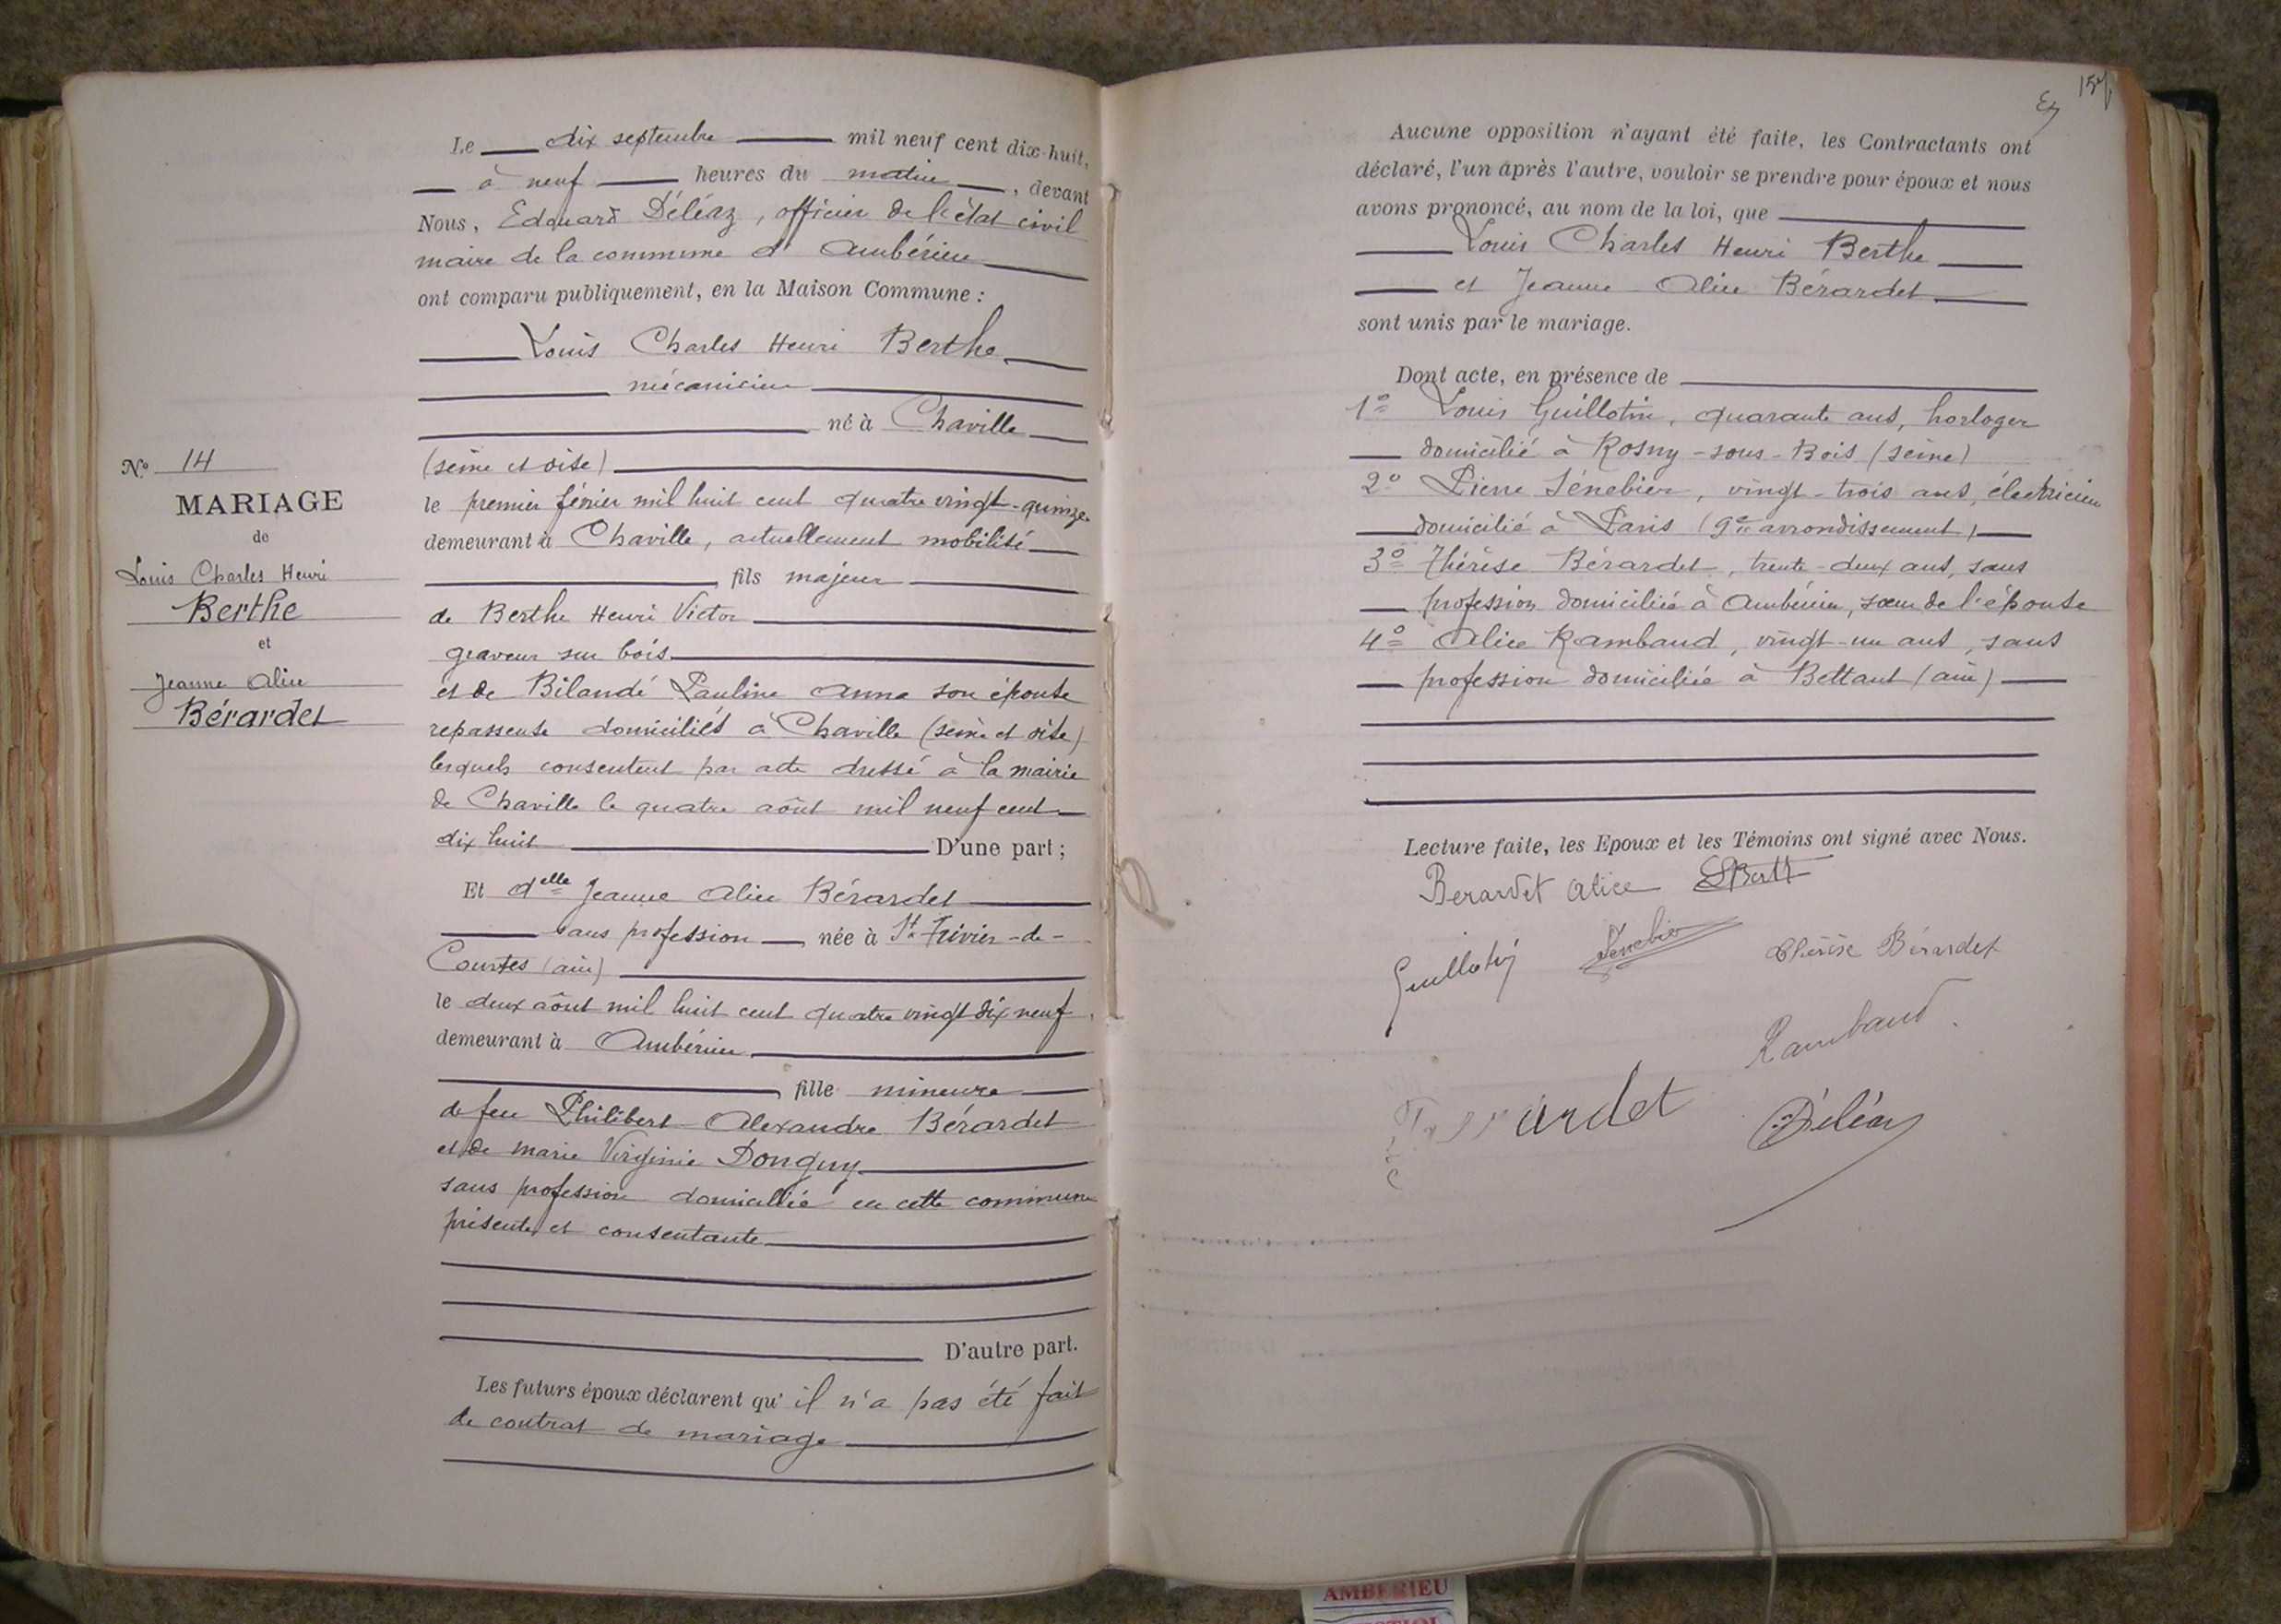 Le dix septembre mil neuf cent dix-huit,
à neuf heures du matin, devant
Nous, Edouard Déléaz, officier de l'état civil
maire de la commune d'Ambérieu
ont comparu publiquement, en la Maison Commune :
Louis Charles Henri Berthe
mécanicien
né à Chaville
(seine et oise)
le premier février mil huit cent quatre vingt-quinze
demeurant à Chaville, actuellement mobilisé
fils majeur
de Berthe Henri Victor
graveur sur bois
et de Bilandé Pauline Anna son épouse
repasseuse domiciliés à Chaville (seine et oise)
lesquels consentent par acte dressé à la mairie
de Chaville le quatre aôut mil neuf cent
dix huit D'une part ;
Et delle Jeanne Alice Bérardet
sans profession, née à St Trivier-de-
Courtes (ain)
le deux aôut mil huit cent quatre vingt dix neuf,
demeurant à Ambérieu
fille mineure
de feu Philibert Alexandre Bérardet
et de marie Virginie Donguy
sans profession domiciliée en cette commune
présente et consentante
D'autre part.
Les futurs époux déclarent qu'il n'a pas été fait
de contrat de mariage
N° 14
MARIAGE
de
Louis Charles Henri
Berthe
et
Jeanne Alice
Bérardet
Aucune opposition n'ayant été faite, les Contractants ont
déclaré, l'un après l'autre, vouloir se prendre pour époux et nous
avons prononcé, au nom de la loi, que
Louis Charles Henri Berthe
et Jeanne Alice Bérardet
sont unis par le mariage.
Dont acte, en présence de
1° Louis Guillotin, quarante ans, horloger
domicilié à Rosny-sous-Bois (seine)
2° Pierre Sénebier, vingt-trois ans, électricien
domicilié à Paris (9e arrondissement)
3° Thérèse Bérardet, trente-deux ans, sans
profession domiciliée à Ambérieu, sœur de l'épouse
4° Alice Rambaud, vingt-un ans, sans
profession domiciliée à Bettant (ain)
Lecture faite, les Epoux et les Témoins ont signé avec Nous.
Berardet Alice
Guillotin Senebier Thérèse Bérardet
Rambaud
Déléaz
AMBERIEU